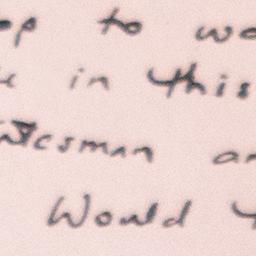 op to wo
in this
csman an
Would